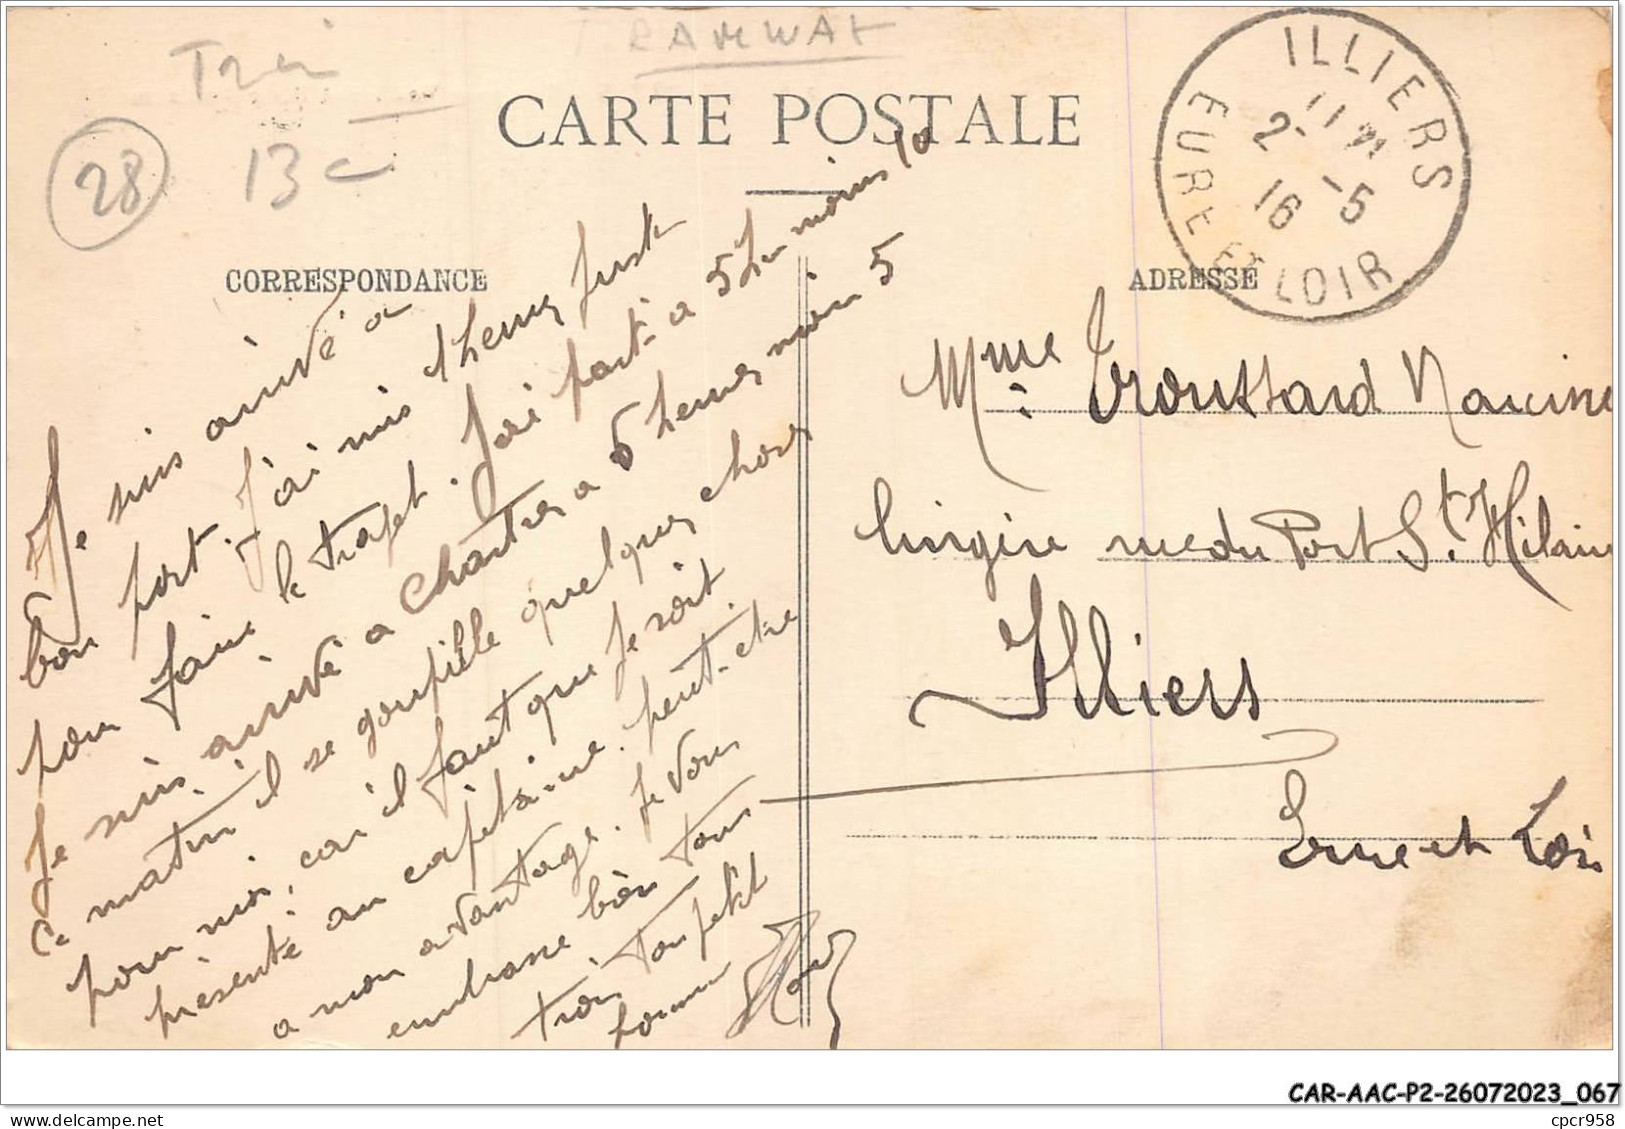 TRAMWAY
28
13
CARTE POSTALE
CORRESPONDANCE
ADRESSE
ILLIERS
11
2-5
16
EURE ET LOIR
Je suis arrivé a
bon port. J'ai mis 1 heure juste
pour faire le trajet. J'ai parti a 5 h moins 10
Je suis arrivé a Chartres a 6 heures moin 5
Ce matin il se goupille quelques choses
pour moi, car il faut que je soit
présenté au capitaine. peut-etre
a mon avantage. Je vous
embrasse bien tous
trois. Ton petit
homme
Mme Troussard Narcisse
lingère rue du Port St. Hilaire
Illiers
Eure et Loir
CAR-AAC-P2-26072023_067
cpcr958